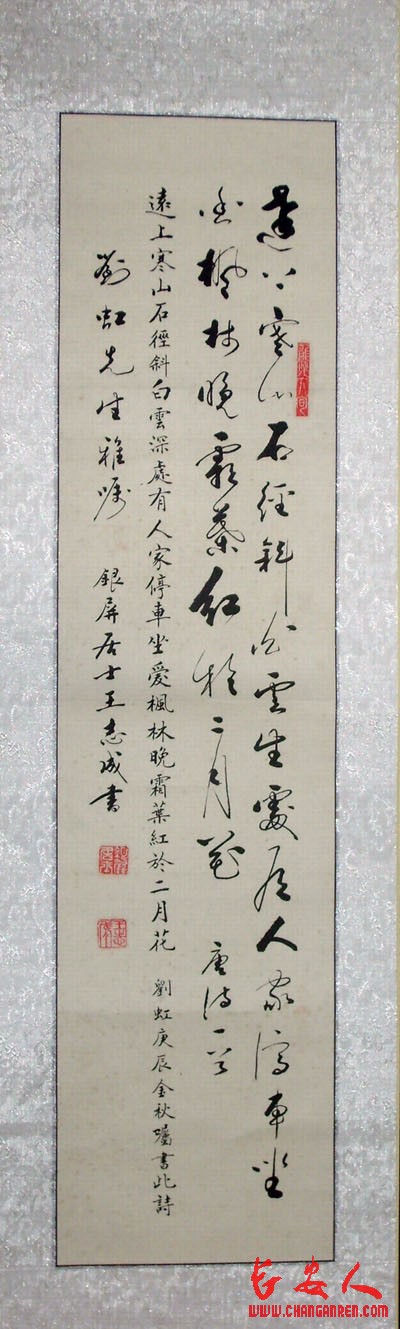 遠上寒山石徑斜白雲生處有人家停車坐
愛楓林晚霜葉紅於二月花 唐詩一首
遠上寒山石徑斜白雲深處有人家停車坐愛楓林晚霜葉紅於二月花 劉虹庚辰金秋囑書此詩
劉虹先生雅嘱 銀屏居士王志成書
长安人
WWW.CHANGANREN.COM